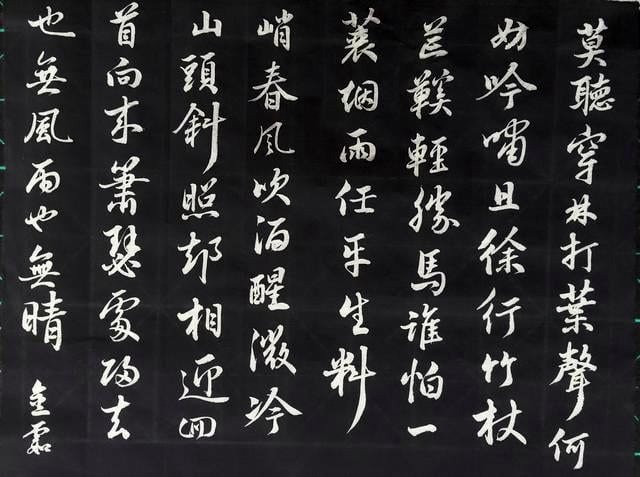 莫聽穿林打葉聲何
妨吟嘯且徐行竹杖
芒鞵輕勝馬誰怕一
蓑烟雨任平生料
峭春風吹酒醒微冷
山頭斜照却相迎囬
首向来蕭瑟處歸去
也無風雨也無晴